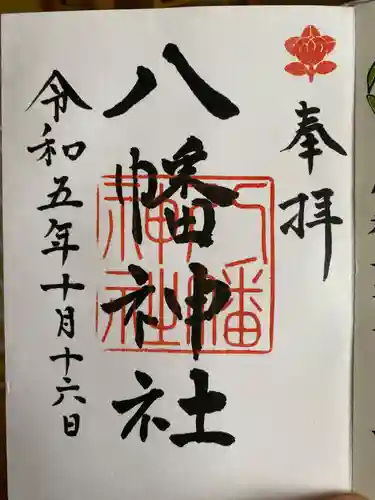 奉拝
八幡神社
八幡神社
令和五年十月十六日